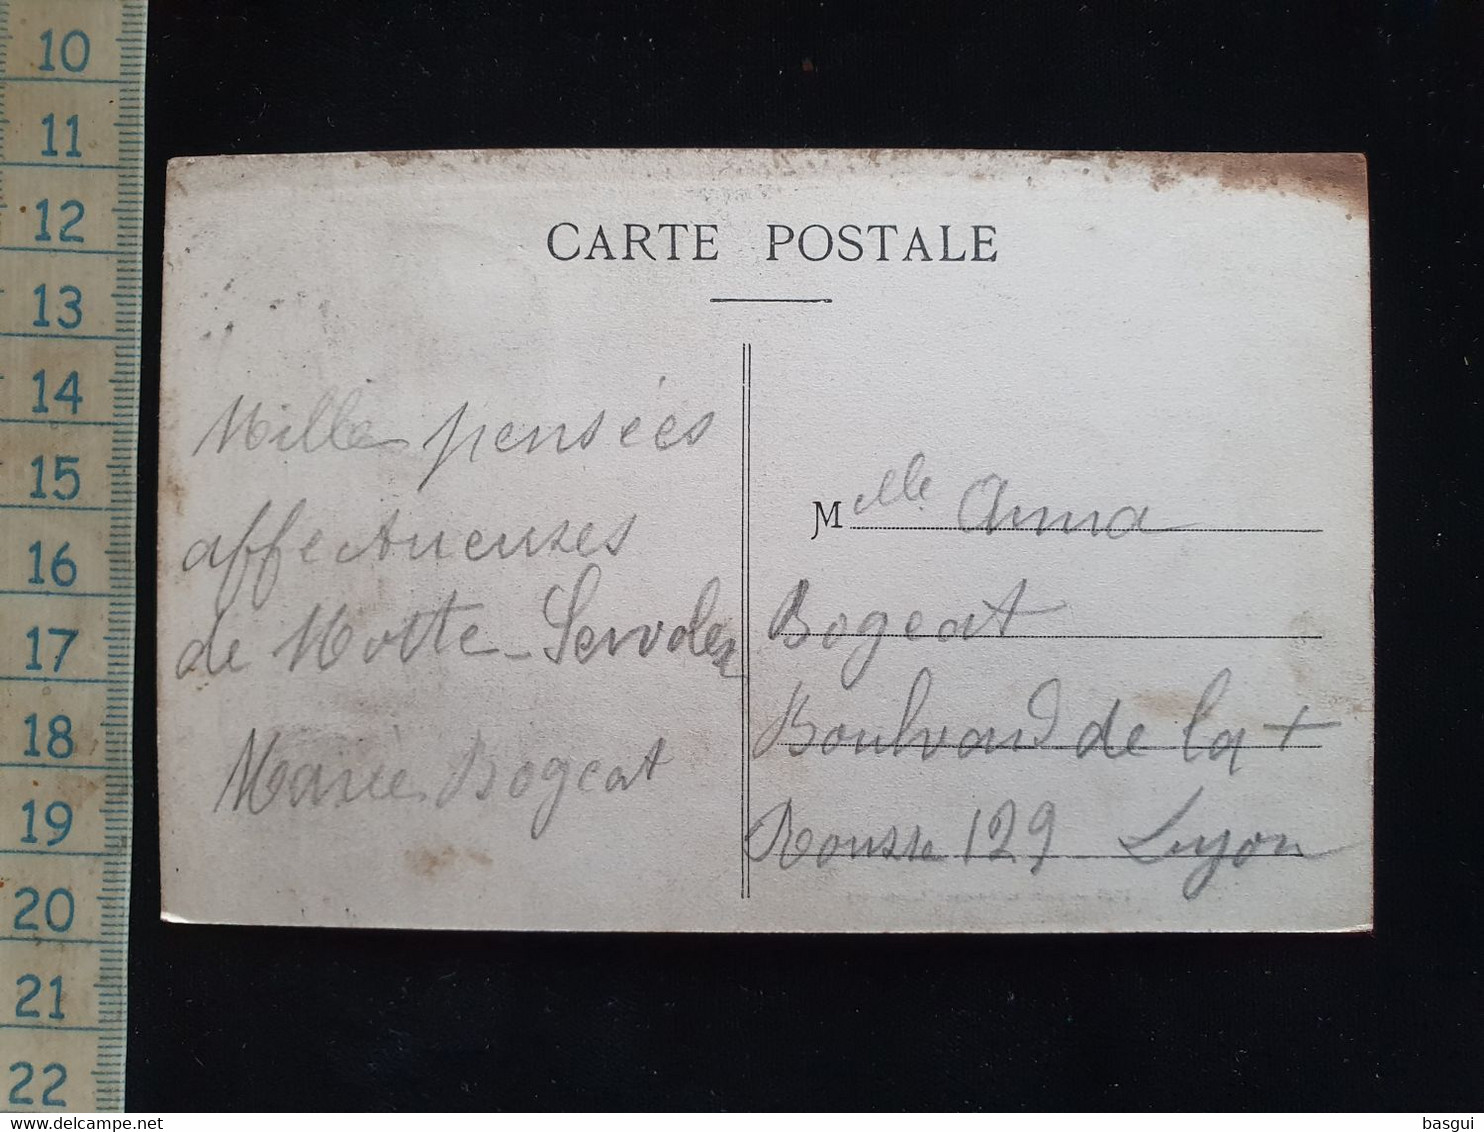 10
11
12
13
14
15
16
17
18
19
20
21
22
CARTE POSTALE
Mille pensées
affectueuses
de Motte-Servolex
Marie Bogeat
Melle Anna
Bogeat
Boulvard de la +
Rousse 129 Lyon
basgui